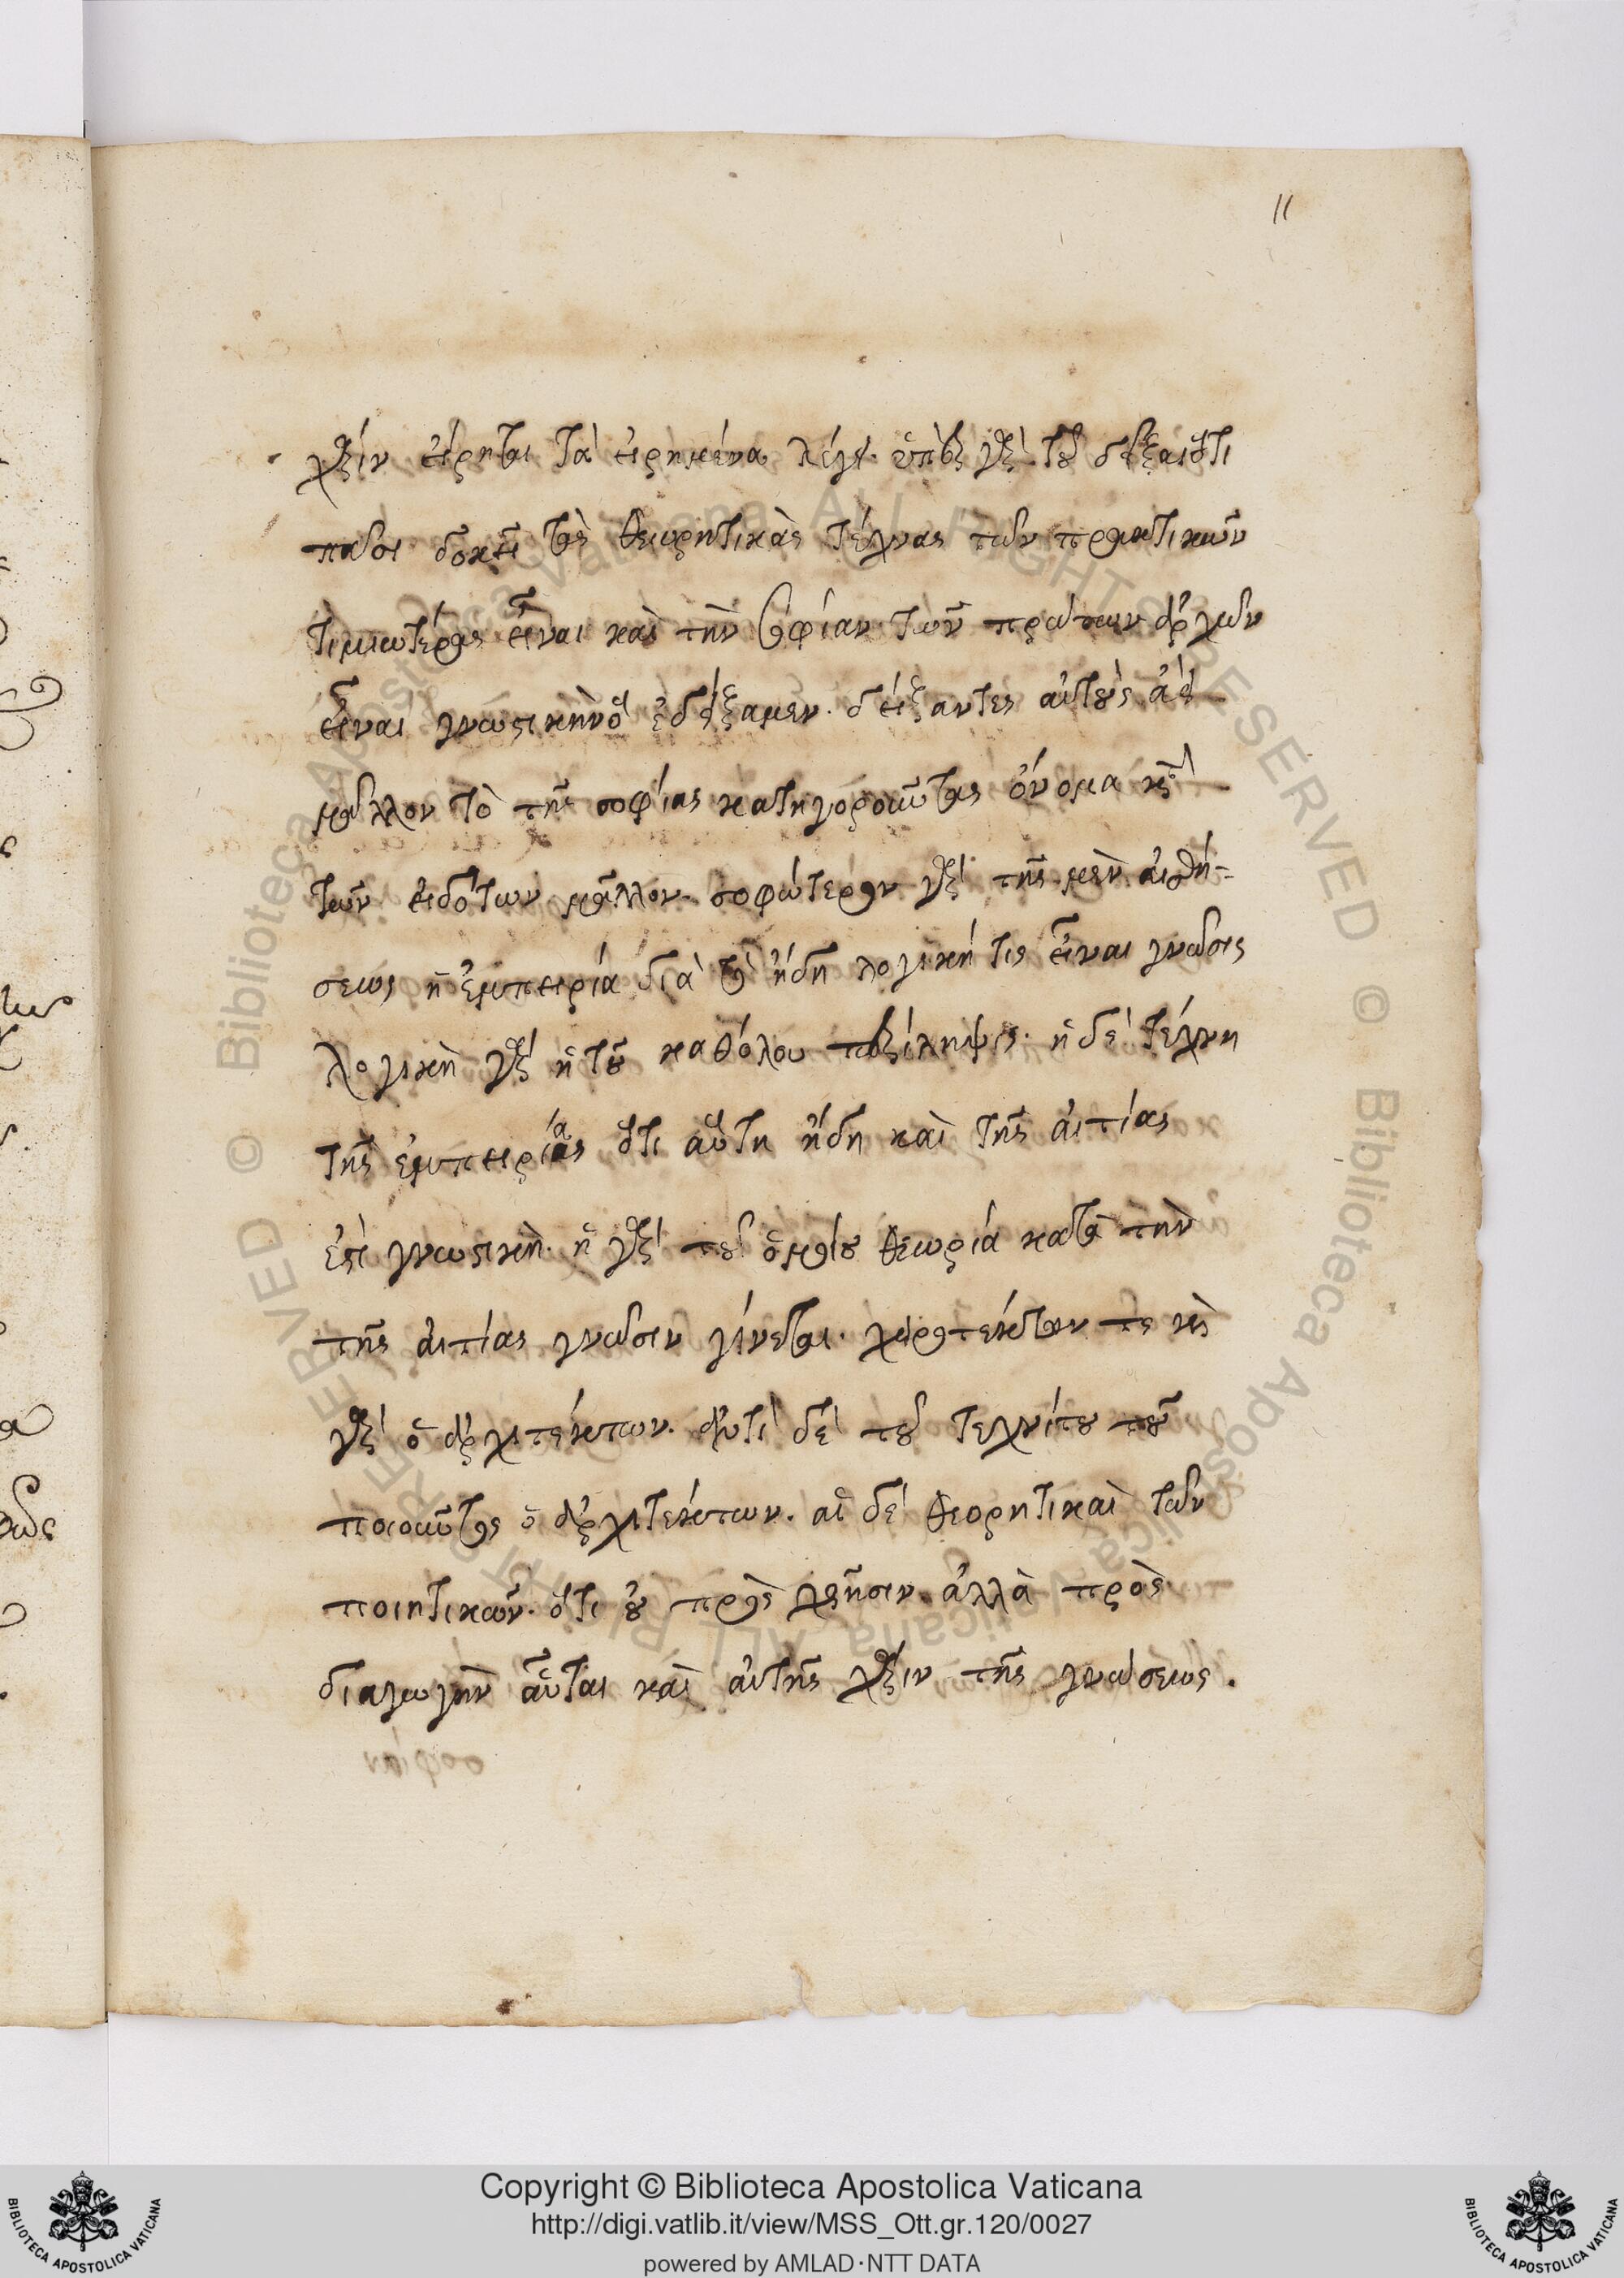 11
χάριν εἴρηται τὰ εἰρημένα λέγει. ὑπὲρ γὰρ τοῦ δεῖξαι ὅτι
πᾶσι δοκεῖ τὰς θεωρητικὰς τέχνας τῶν πρακτικῶν
τιμιωτέρας εἶναι καὶ τὴν σοφίαν τῶν πρώτων ἀρχῶν
εἶναι γνωστικὴν ἐδείξαμεν. δείξαντες αὐτοὺς ἀεὶ
μᾶλλον τὸ τῆς σοφίας κατηγοροῦντας ὄνομα κατὰ
τῶν εἰδότων μᾶλλον. σοφώτερον γὰρ τῆς μὲν αἰσθή-
σεως ἡ ἐμπειρία διὰ τὸ ἤδη λογική τις εἶναι γνῶσις
λογικὴ γὰρ ἡ τοῦ καθόλου περίληψις. ἡ δὲ τέχνη
τῆς ἐμπειρίας ὅτι αὕτη ἤδη καὶ τῆς αἰτίας
ἐστὶ γνωστικὴ. ἡ γὰρ τοῦ ὁμοίου θεωρία κατὰ τὴν
τῆς αἰτίας γνῶσιν γίνεται. χειροτέκτων τε καὶ
γὰρ ὁ ἀρχιτέκτων. ἀντὶ δὲ τοῦ τεχνίτου τοῦ
ποιοῦντος ὁ ἀρχιτέκτων. αἱ δὲ θεορητικαὶ τῶν
ποιητικῶν. ὅτι οὐ πρὸς χρῆσιν ἀλλὰ πρὸς
διαγωγὴν αὗται καὶ αὐτῆς χάριν τῆς γνώσεως.
Copyright © Biblioteca Apostolica Vaticana
http://digi.vatlib.it/view/MSS_Ott.gr.120/0027
powered by AMLAD·NTT DATA